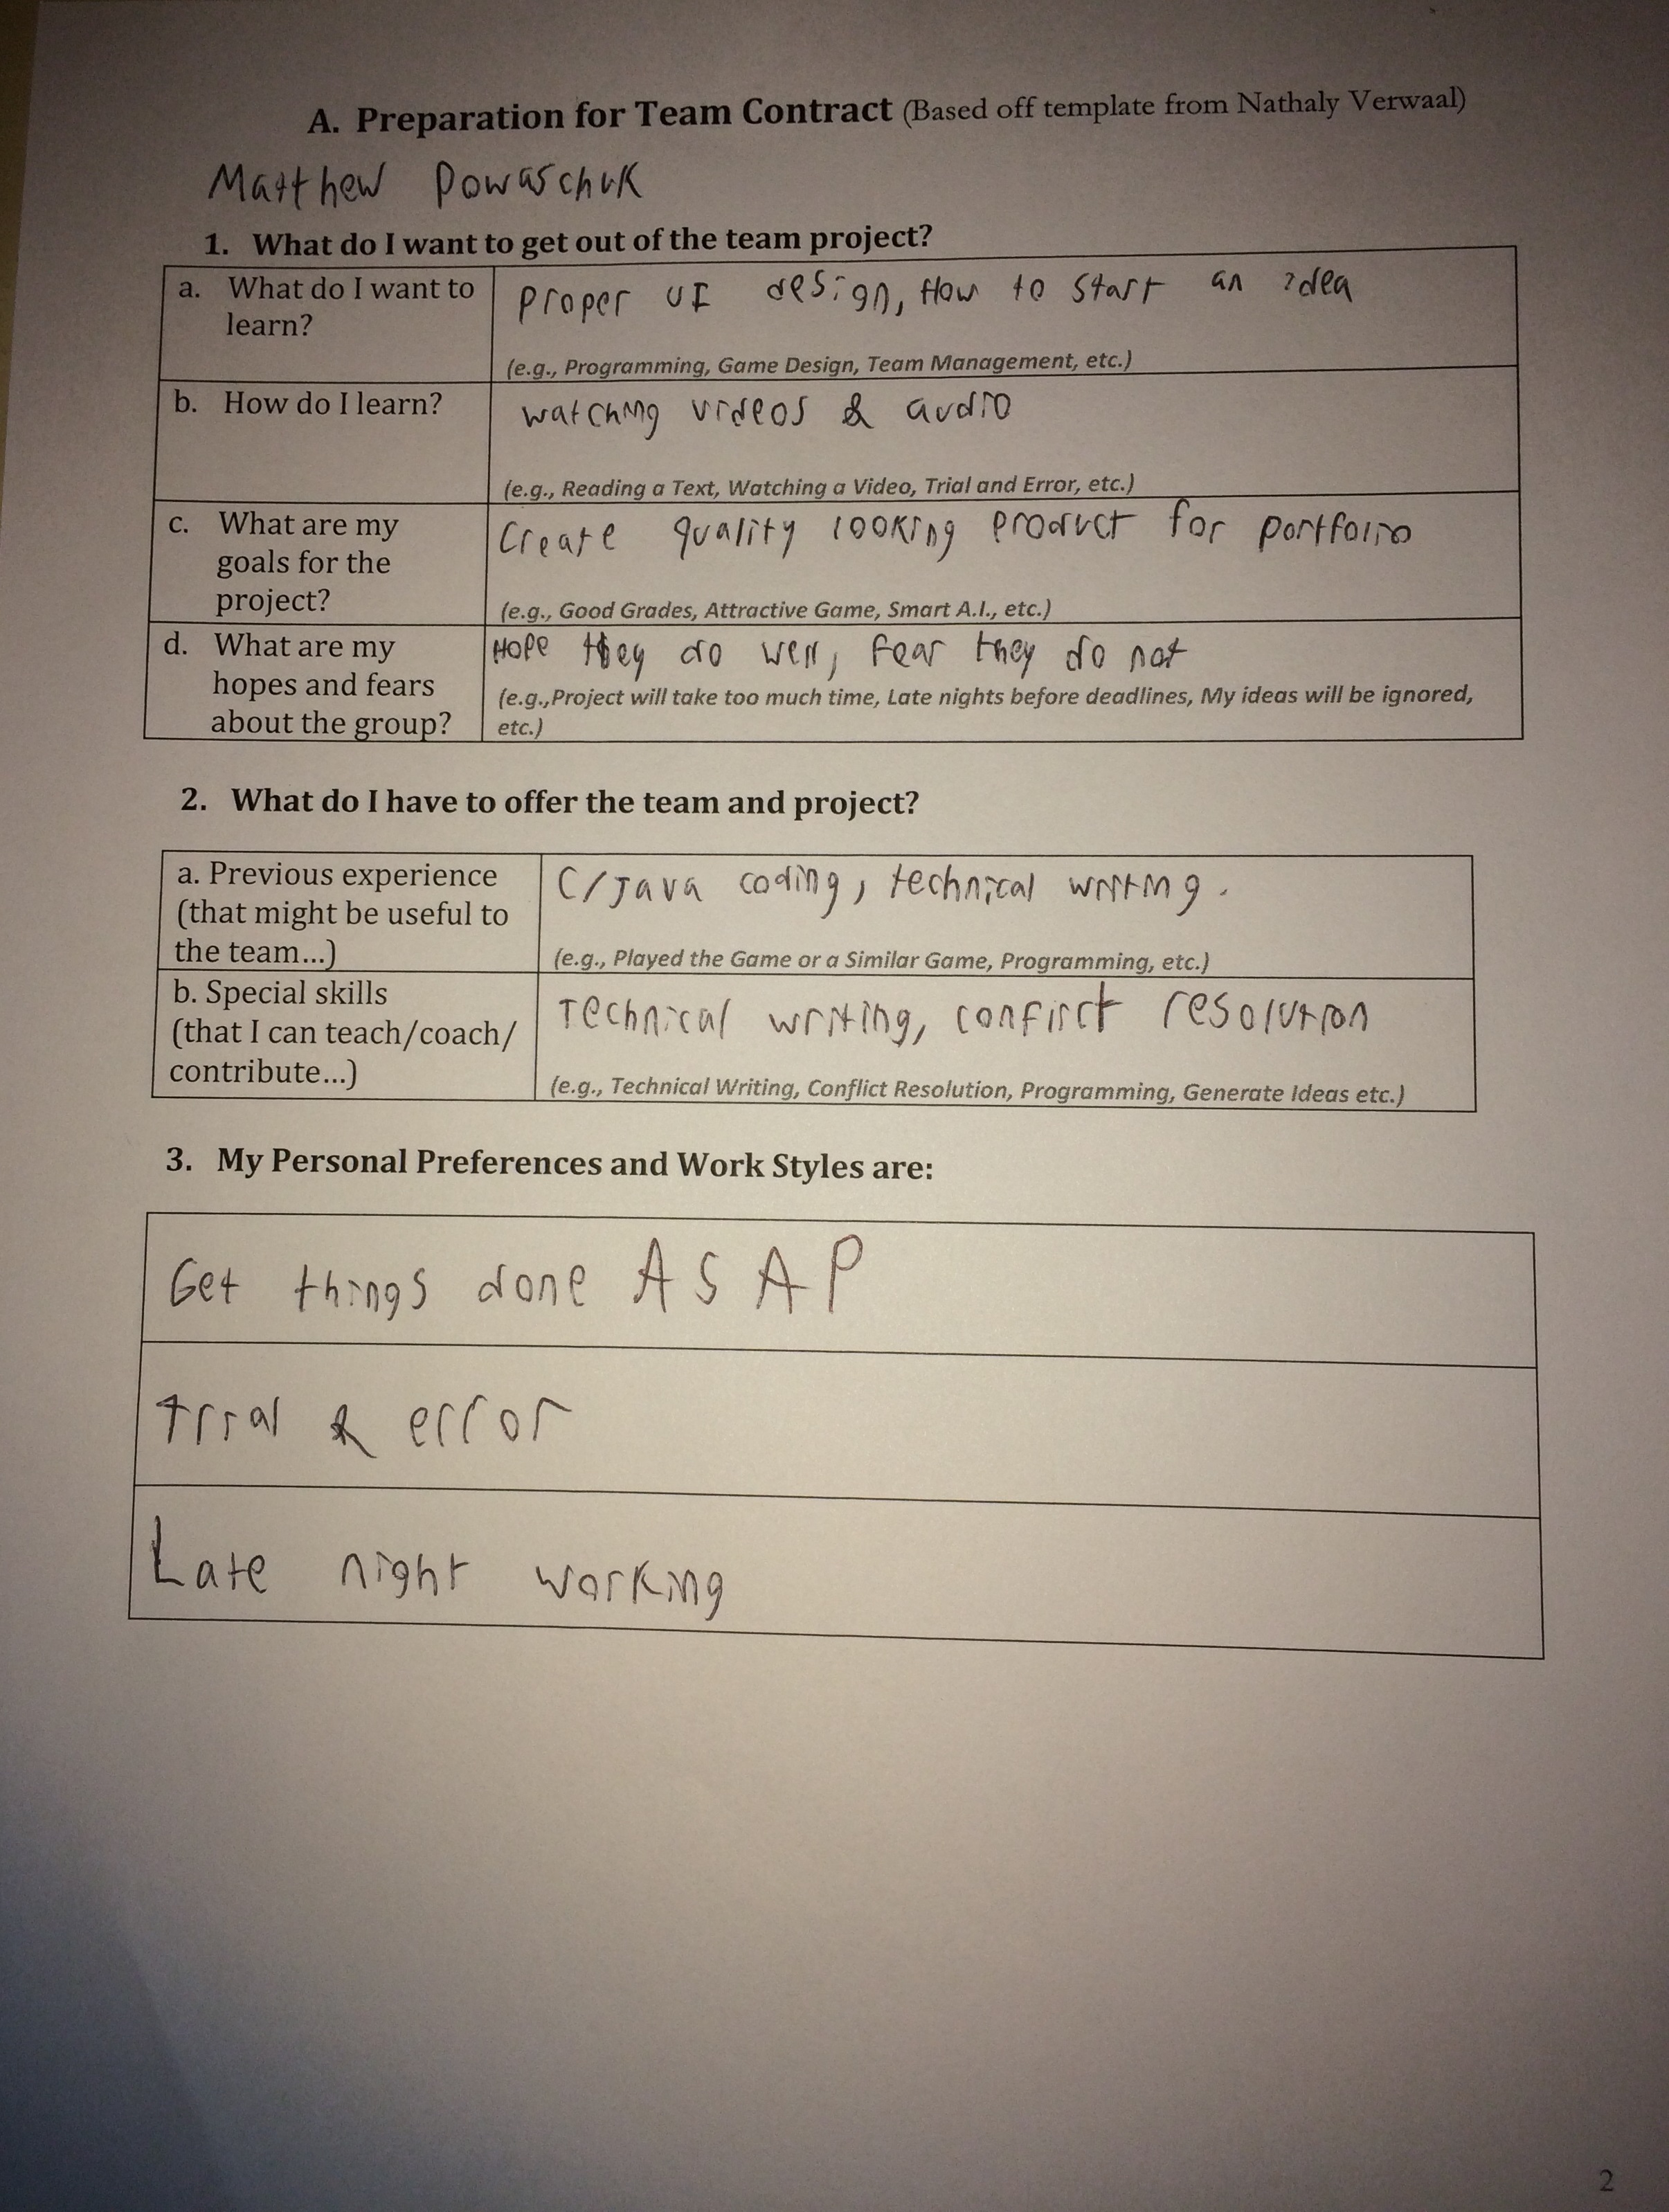 A. Preparation for Team Contract (Based off template from Nathaly Verwaal)
Matthew Powaschuk
1. What do I want to get out of the team project?
a. What do I want to learn?
Proper UI design, How to start an idea
(e.g., Programming, Game Design, Team Management, etc.)
b. How do I learn?
watching videos & audio
(e.g., Reading a Text, Watching a Video, Trial and Error, etc.)
c. What are my goals for the project?
Create quality looking product for portfolio
(e.g., Good Grades, Attractive Game, Smart A.I., etc.)
d. What are my hopes and fears about the group?
Hope they do well, fear they do not
(e.g.,Project will take too much time, Late nights before deadlines, My ideas will be ignored,
etc.)
2. What do I have to offer the team and project?
a. Previous experience
(that might be useful to
the team...)
C/Java coding, technical writing.
(e.g., Played the Game or a Similar Game, Programming, etc.)
b. Special skills
(that I can teach/coach/
contribute...)
Technical writing, conflict resolution
(e.g., Technical Writing, Conflict Resolution, Programming, Generate Ideas etc.)
3. My Personal Preferences and Work Styles are:
Get things done ASAP
trial & error
Late night working
2